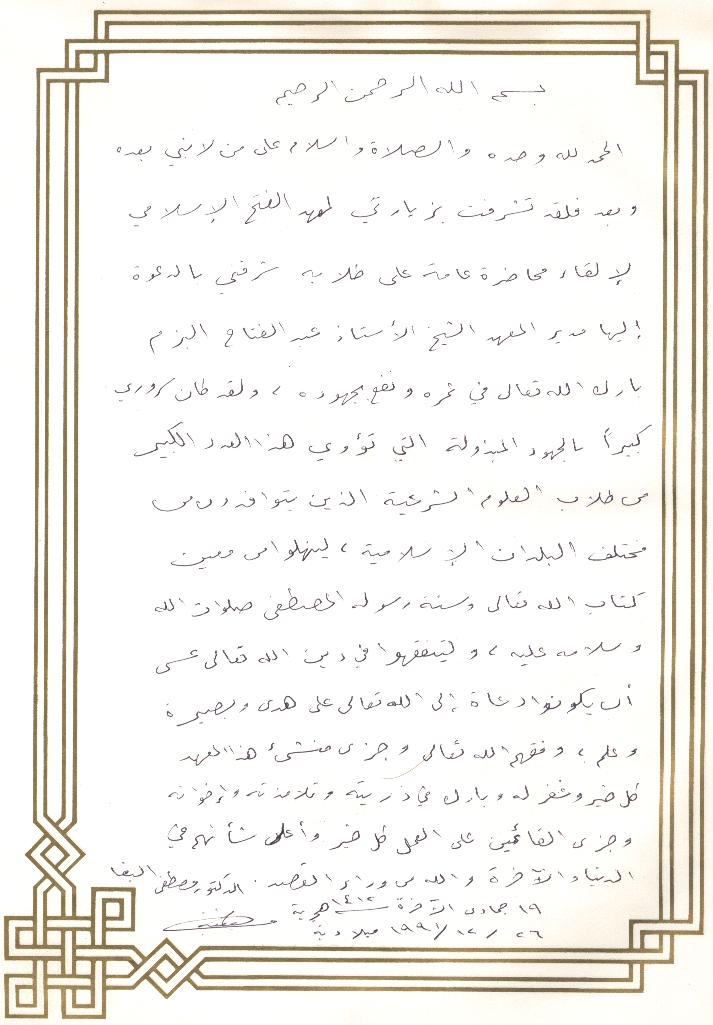 بسم الله الرحمن الرحيم
الحمد لله وحده والصلاة والسلام على من لا نبي بعده
وبعد فلقد تشرفت بزيارتي لمعهد الفتح الإسلامي
لإلقاء محاضرة عامة على طلابه شرفني بالدعوة
إليها مدير المعهد الشيخ الأستاذ عبد الفتاح البزم
بارك الله تعالى في عمره ونفع بجهوده ، ولقد كان سروري
كبيراً بالجهود المبذولة التي تؤوي هذا العدد الكبير
من طلاب العلوم الشرعية الذين يتوافدون من
مختلف البلدان الإسلامية ، لينهلوا من معين
كتاب الله تعالى وسنة رسوله المصطفى صلوات الله
وسلامه عليه ، وليتفقهوا في دين الله تعالى عسى
أن يكونوا دعاة إلى الله تعالى على هدى وبصيرة
وعلم ، وفقهم الله تعالى وجزى منشئ هذا المعهد
كل خير وغفر له وبارك في ذريته وتلامذته وإخوانه
وجزى القائمين على العمل كل خير وأعلى شأنهم في
الدنيا والآخرة والله من وراء القصد . الدكتور مصطفى البغا
١٩ جمادى الآخرة ١٤١٢ هجرية
٢٦ / ١٢ / ١٩٩١ ميلادية